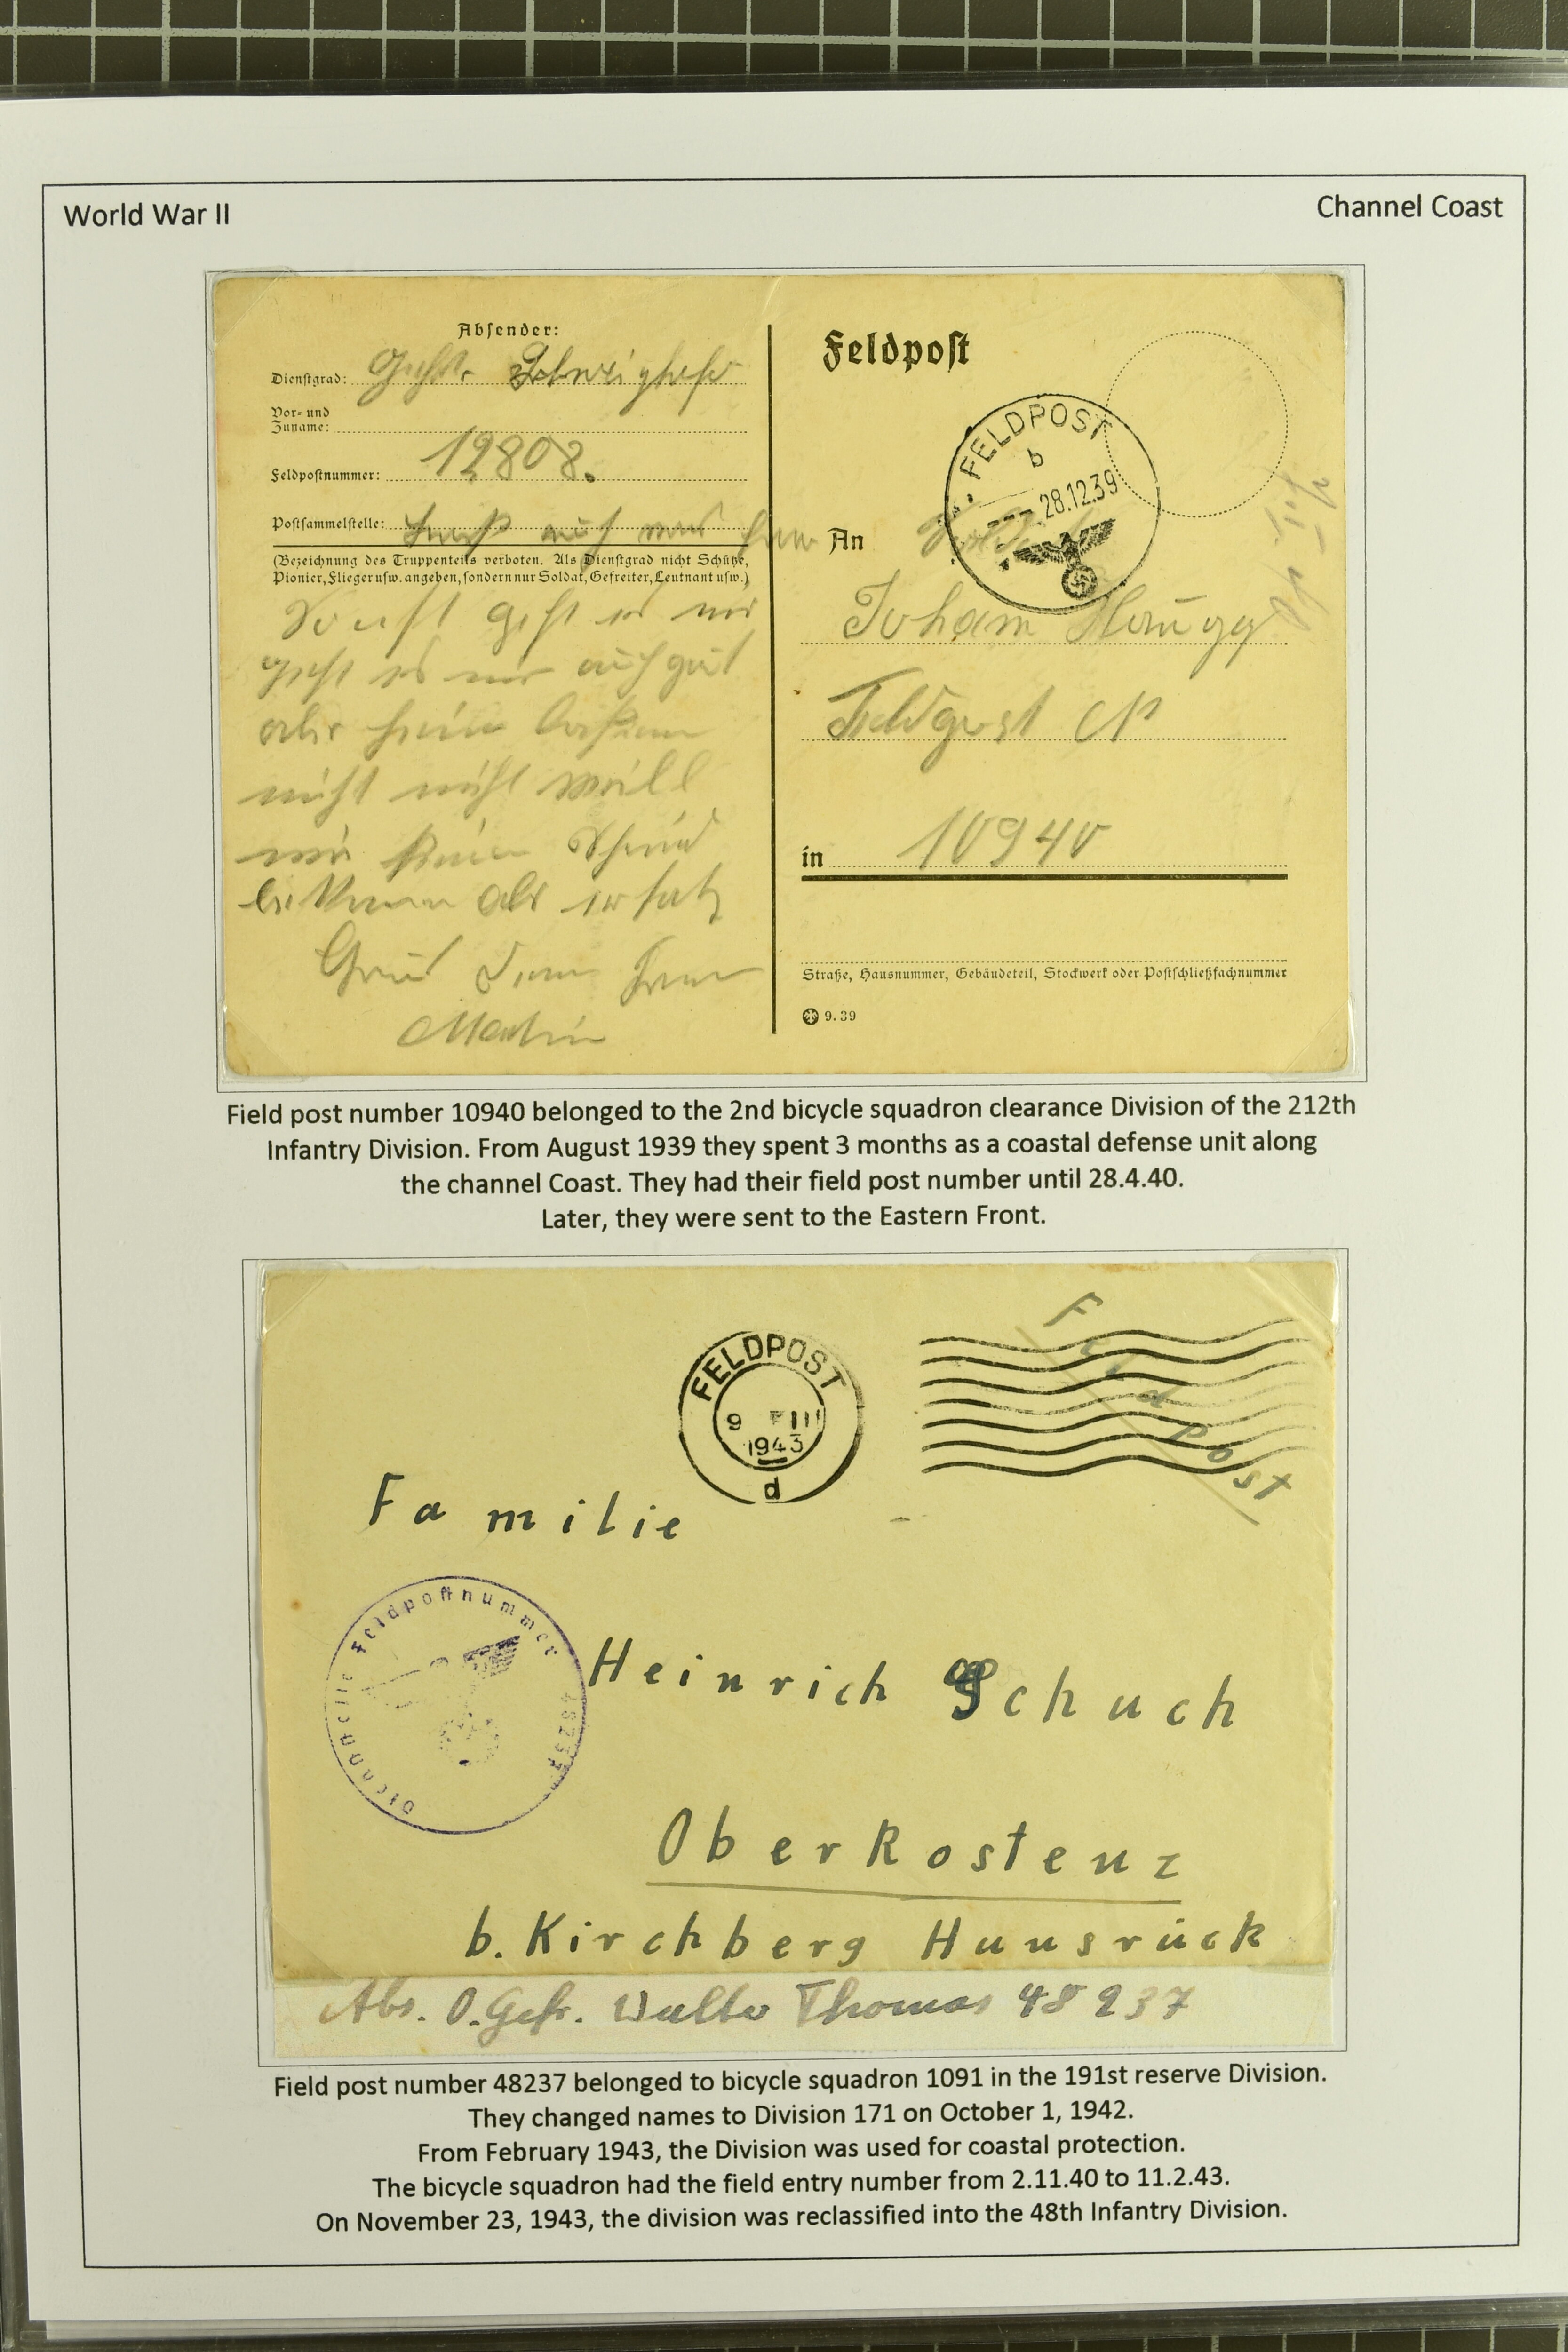 World War II
Channel Coast
Absender:
Dienstgrad: Gefr.
Vor- und
Zuname:
Feldpostnummer: 12808.
Postsammelstelle:
(Bezeichnung des Truppenteils verboten. Als Dienstgrad nicht Schütze,
Pionier, Flieger usw. angeben, sondern nur Soldat, Gefreiter, Leutnant usw.)
Sonst geht es mir
geht es mir auch gut
aber
nicht nicht weill
wir
als ersatz
Martin
Feldpost
FELDPOST
b
28.12.39
An Soldat
Johann Haugg
Feldpost N
in 10940
Straße, Hausnummer, Gebäudeteil, Stockwerk oder Postschließfachnummer
9.39
Field post number 10940 belonged to the 2nd bicycle squadron clearance Division of the 212th
Infantry Division. From August 1939 they spent 3 months as a coastal defense unit along
the channel Coast. They had their field post number until 28.4.40.
Later, they were sent to the Eastern Front.
FELDPOST
9 III
1943
d
Feldpost
Familie
Dienststelle Feldpostnummer 48237
Heinrich Schuch
Oberkostenz
b. Kirchberg Hunsrück
Abs. O.Gefr. Walter Thomas 48237
Field post number 48237 belonged to bicycle squadron 1091 in the 191st reserve Division.
They changed names to Division 171 on October 1, 1942.
From February 1943, the Division was used for coastal protection.
The bicycle squadron had the field entry number from 2.11.40 to 11.2.43.
On November 23, 1943, the division was reclassified into the 48th Infantry Division.